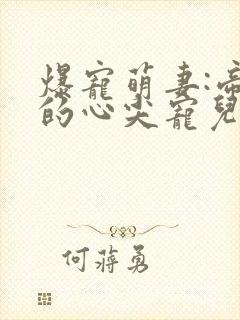 爆寵萌妻:帝
的心尖寵兒
何蔣勇